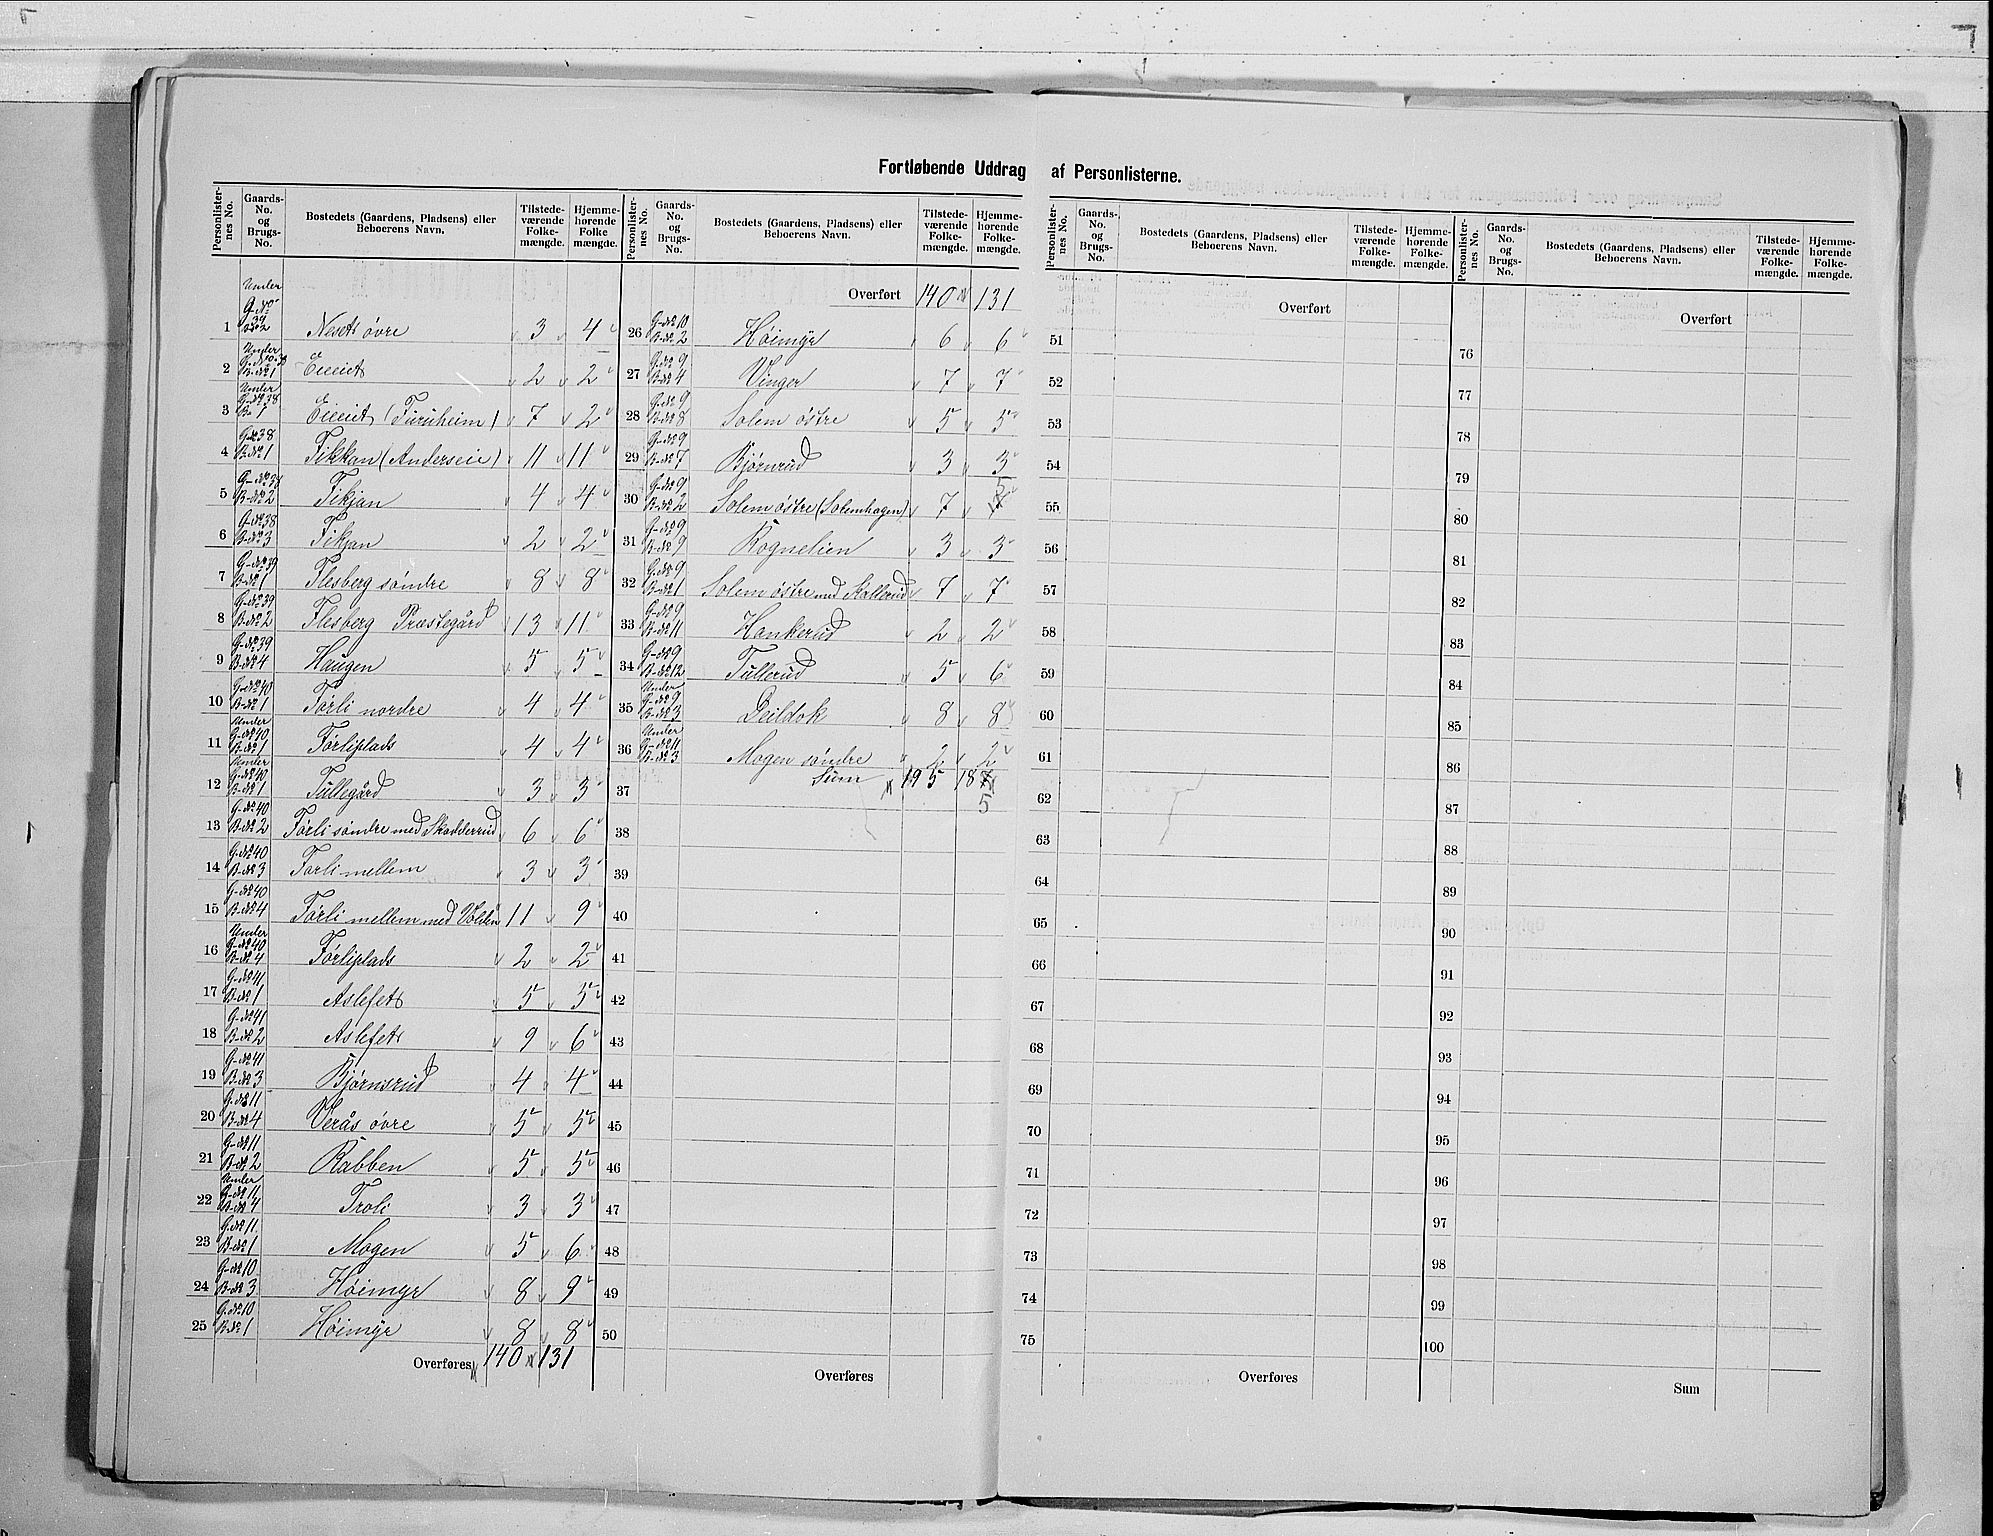 Fortløbende Uddrag af Personlisterne.
Personlister-nes No. | Gaards-No. og Brugs-No. | Bostedets (Gaardens, Pladsens) eller Beboerens Navn. | Tilstede-værende Folke-mængde. | Hjemme-hørende Folke mængde.
1 Under G-No 39 B-No 2 Neset øvre 3 4
2 Under G-No 38 B-No 1 Eieiet 2 2
3 Under G-No 38 B-No 1 Eieiet (Furuheim) 7 2
4 G-No 38 B-No 1 Tikkan (Anderseie) 11 11
5 G-No 38 B-No 2 Tikjan 4 4
6 G-No 38 B-No 3 Tikjan 2 2
7 G-No 39 B-No 1 Flesberg søndre 8 8
8 G-No 39 B-No 2 Flesberg Præstegård 13 11
9 G-No 39 B-No 4 Haugen 5 5
10 G-No 40 B-No 1 Førli nordre 4 4
11 Under G-No 40 B-No 1 Førliplads 4 4
12 Under G-No 40 B-No 1 Tullegård 3 3
13 G-No 40 B-No 2 Førli søndre med Skadderud 6 6
14 G-No 40 B-No 3 Førli mellem 3 3
15 G-No 40 B-No 4 Førli mellem med Volden 11 9
16 Under G-No 40 B-No 4 Førliplads 2 2
17 G-No 41 B-No 1 Aslefet 5 5
18 G-No 41 B-No 2 Aslefet 9 6
19 G-No 41 B-No 3 Bjørnsrud 4 4
20 G-No 11 B-No 4 Verås øvre 5 5
21 G-No 11 B-No 2 Rabben 5 5
22 Under G-No 11 B-No 4 Troli 3 3
23 G-No 11 B-No 1 Mogen 5 6
24 G-No 10 B-No 3 Høimyr 8 9
25 G-No 10 B-No 1 Høimyr 8 8
Overføres 140 131
Personlister-nes No. | Gaards-No. og Brugs-No. | Bostedets (Gaardens, Pladsens) eller Beboerens Navn. | Tilstede-værende Folke-mængde. | Hjemme-hørende Folke-mængde.
Overført 140 131
26 G-No 10 B-No 2 Høimyr 6 6
27 G-No 9 B-No 4 Vinger 7 7
28 G-No 9 B-No 8 Solem østre 5 5
29 G-No 9 B-No 7 Bjørnrud 3 3
30 G-No 9 B-No 2 Solem østre (Solemhagen) 7 7 5
31 G-No 9 B-No 9 Rognelien 3 3
32 G-No 9 B-No 1 Solem østre med Kallerud 7 7
33 G-No 9 B-No 11 Hankerud 2 2
34 G-No 9 B-No 12 Tullerud 5 6
35 Under G-No 9 B-No 3 Deildok 8 8
36 Under G-No 11 B-No 3 Mogen søndre 2 2
Sum 195 187
37 5
38
39
40
41
42
43
44
45
46
47
48
49
50
Overføres
Personlister-nes No. | Gaards-No. og Brugs-No. | Bostedets (Gaardens, Pladsens) eller Beboerens Navn. | Tilstede-værende Folke-mængde. | Hjemme-hørende Folke-mængde.
Overført
51
52
53
54
55
56
57
58
59
60
61
62
63
64
65
66
67
68
69
70
71
72
73
74
75
Overføres
Personlister-nes No. | Gaards-No. og Brugs-No. | Bostedets (Gaardens, Pladsens) eller Beboerens Navn. | Tilstede-værende Folke-mængde. | Hjemme-hørende Folke-mængde.
Overført
76
77
78
79
80
81
82
83
84
85
86
87
88
89
90
91
92
93
94
95
96
97
98
99
100
Sum